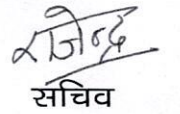 राजेन्द्र
सचिव